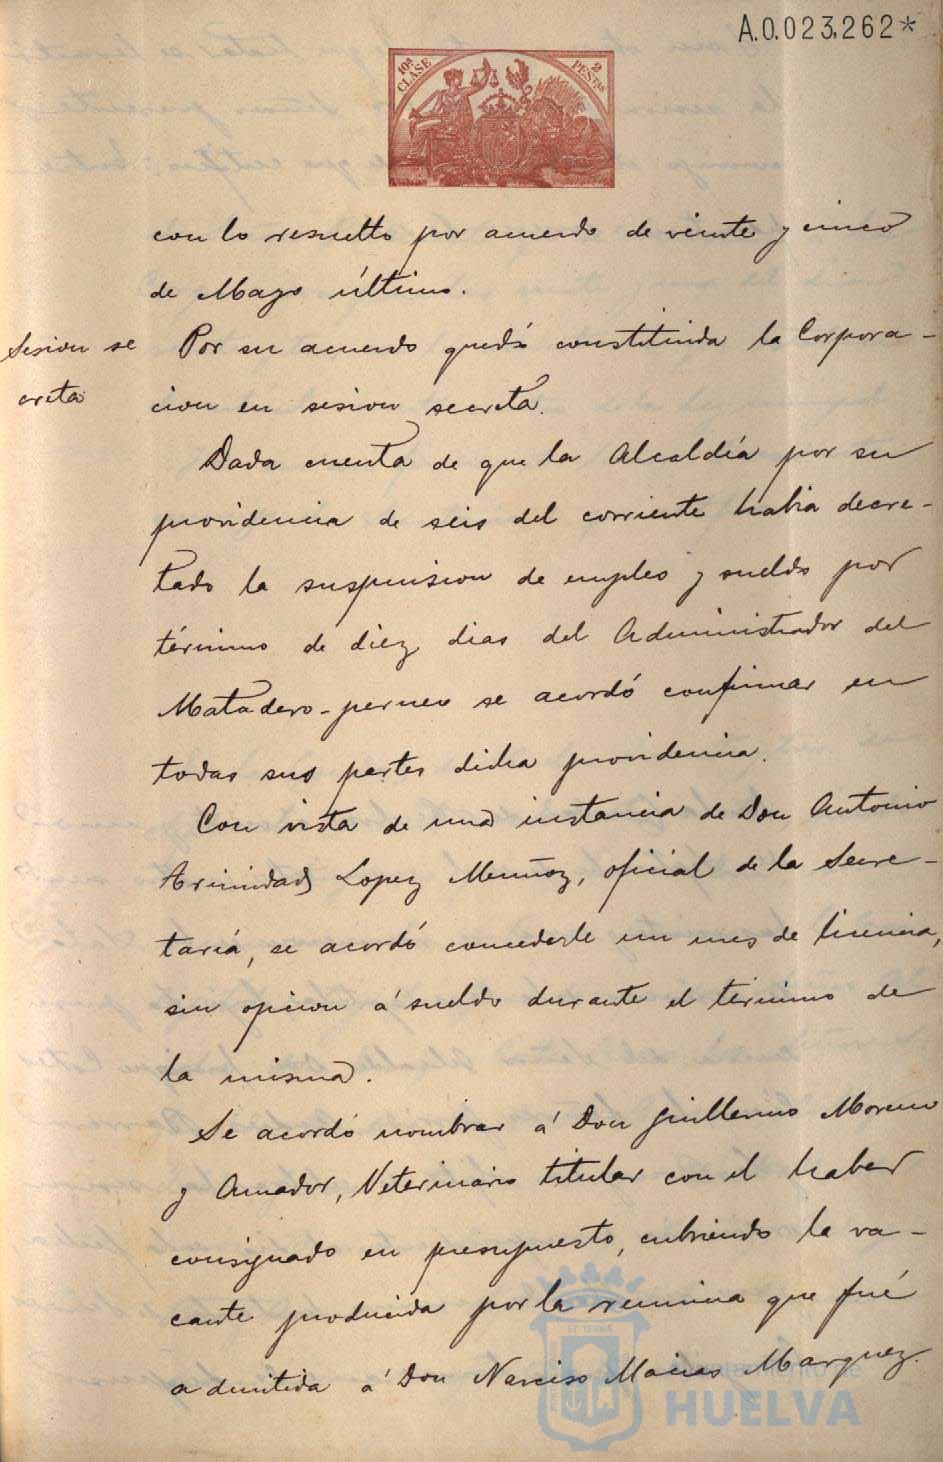 A.0.023.262*
10ª CLASE
2 PESTAS
con lo resuelto por acuerdo de veinte y cinco
de Mayo último.
Sesion se
creta
Por su acuerdo quedó constituida la Corpora-
cion en sesion secreta.
Dada cuenta de que la Alcaldía por su
providencia de seis del corriente habia decre-
tado la suspension de empleo y sueldo por
término de diez dias del Administrador del
Matadero-perneo se acordó confirmar en
todas sus partes dicha providencia.
Con vista de una instancia de Don Antonio
Trinidad Lopez Muñoz, oficial de la Secre-
taría, se acordó concederle un mes de licencia,
sin opcion á sueldo durante el término de
la misma.
Se acordó nombrar á Don Guillermo Moreno
y Amador, Veterinario titular con el haber
consignado en presupuesto, cubriendo la va-
cante producida por la renuncia que fué
admitida á Don Narciso Macias Marquez.
Ayuntamiento de
HUELVA